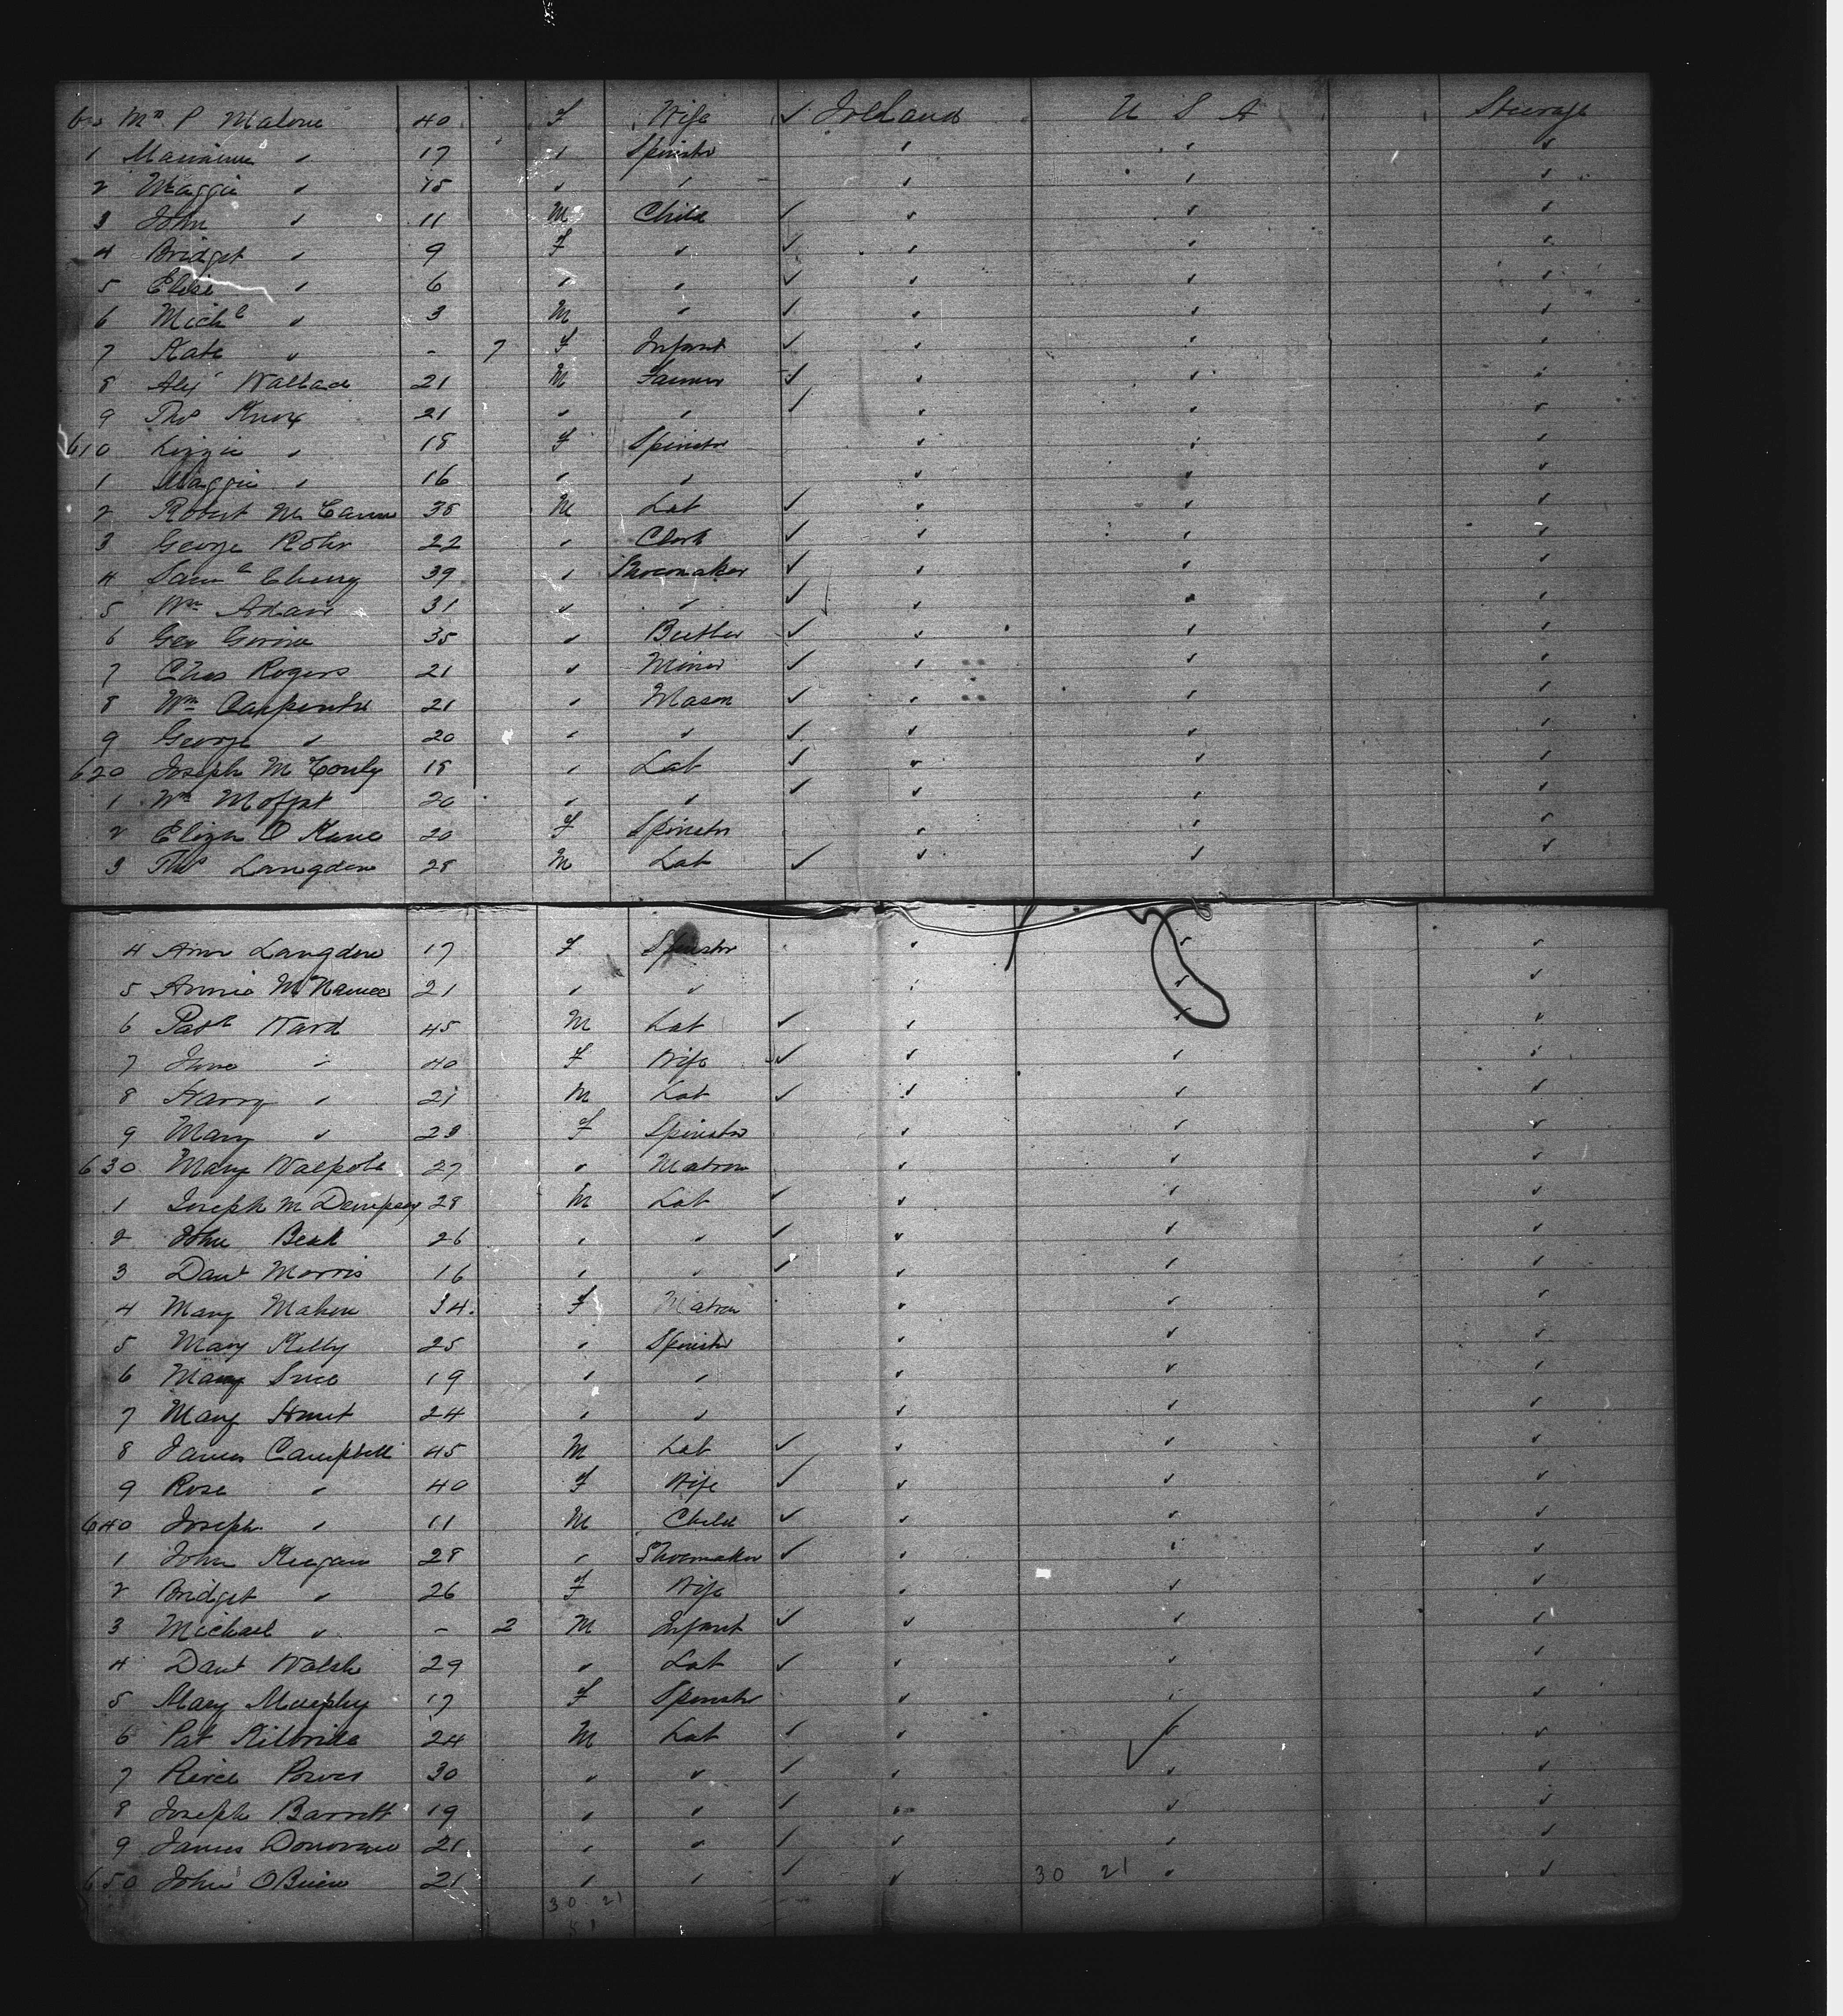 600 Mrs P Malone 40 F Wife ✓ Ireland U S A Steerage
1 " 17 " Spinstr " " "
2 Maggie " 15 " " " " "
3 John " 11 M Child ✓ " " "
4 Bridget " 9 F " ✓ " " "
5 Elise " 6 " " ✓ " " "
6 Michl " 3 M " ✓ " " "
7 Kate " - 7 F Infant ✓ " " "
8 Alexr Wallace 21 M Farmer ✓ " " "
9 Thos Knox 21 " " ✓ " " "
610 Lizzie " 18 F Spinstr " " "
1 Maggie " 16 " " " " "
2 Robert McCann 38 M Lab ✓ " " "
3 George Rohr 22 " Clerk ✓ " " "
4 Saml Cherry 39 " Shoemaker ✓ " " "
5 Wm Adair 31 " " ✓ " " "
6 Geo 35 " Butler ✓ " " "
7 Chas Rogers 21 " Miner ✓ " " "
8 Wm Carpenter 21 " Mason ✓ " " "
9 George " 20 " " ✓ " " "
620 Joseph 18 " Lab ✓ " " "
1 Wm Moffat 20 " " ✓ " " "
2 Elizh O Kane 20 F Spinstr " " "
3 Thos Langdon 28 M Lab ✓ " " "
4 Ann Langdon 17 F Spinstr " " "
5 Annie McNamee 21 " " " " "
6 Patk Ward 45 M Lab ✓ " " "
7 Jane " 40 F Wife ✓ " " "
8 Harry " 21 M Lab ✓ " " "
9 Mary " 23 F Spinstr " " "
630 Mary Walpole 27 " Matron " " "
1 Joseph M Dempsey 28 M Lab ✓ " " "
2 John Beak 26 " " ✓ " " "
3 Danl Morris 16 " " ✓ " " "
4 Mary Maher 34 F Matron " " "
5 Mary Kelly 25 " Spinstr " " "
6 Mary 19 " " " " "
7 Mary Hunt 24 " " " " "
8 James Campbell 45 M Lab ✓ " " "
9 Rose " 40 F Wife ✓ " " "
640 Joseph " 11 M Child ✓ " " "
1 John Keegan 28 " Shoemaker ✓ " " "
2 Bridget " 26 F Wife " " "
3 Michael " - 2 M Infant ✓ " " "
4 Danl Walsh 29 " Lab ✓ " " "
5 Mary Murphy 17 F Spinstr " " "
6 Pat Kilbride 24 M Lab ✓ " " "
7 Pierce Power 30 " " ✓ " " "
8 Joseph Barrett 19 " " ✓ " " "
9 James Donovan 21 " " ✓ " " "
650 John OBrien 21 " " ✓ " 30 21 " "
30 21
51